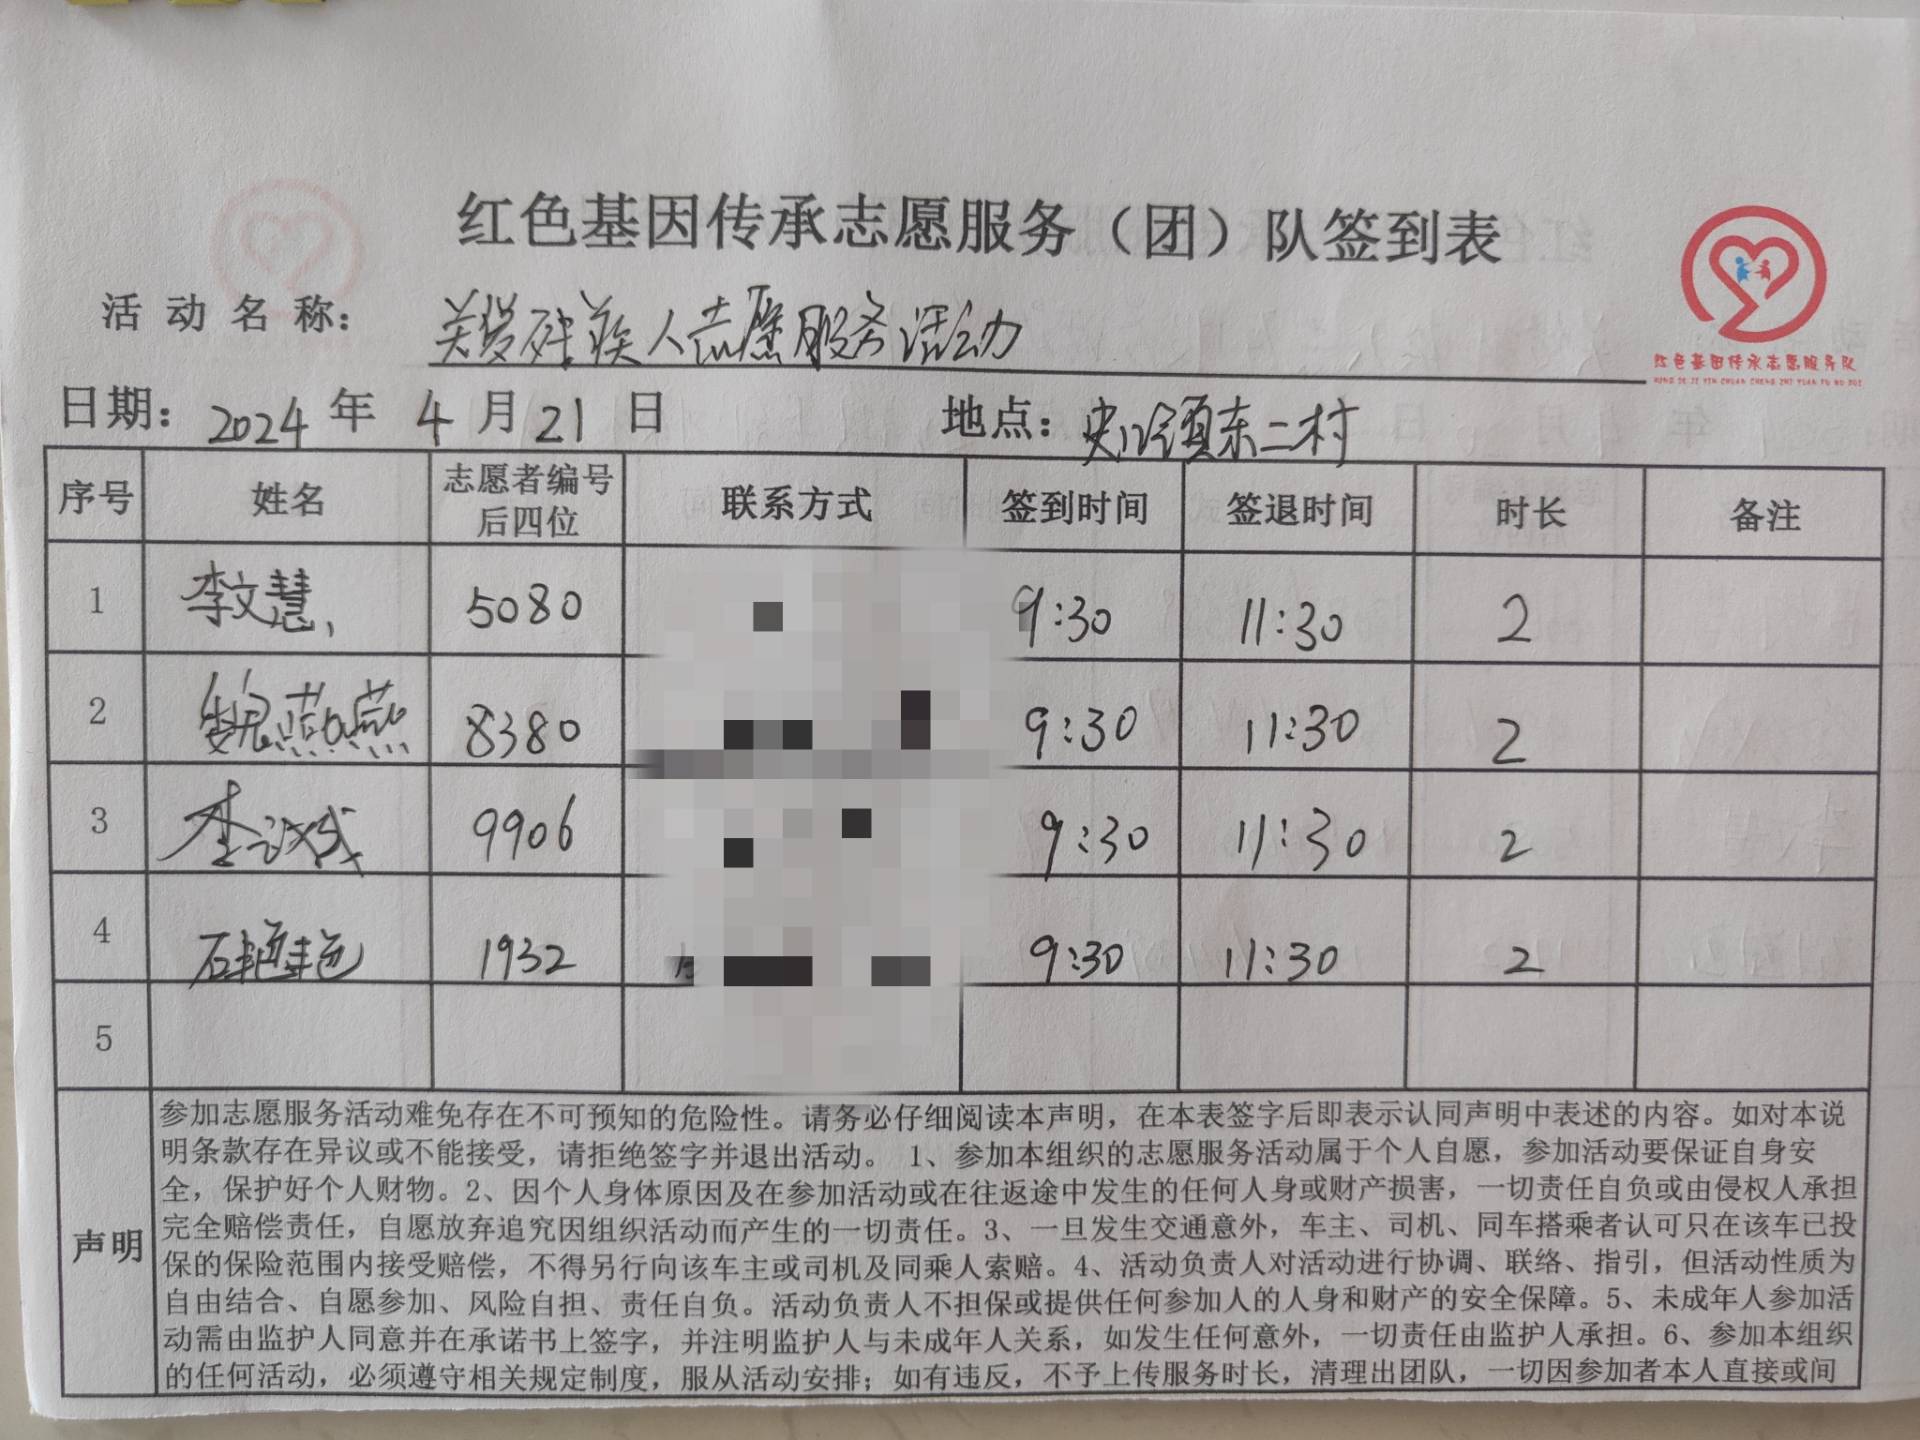 红色基因传承志愿服务（团）队签到表
红色基因传承志愿服务队
HONG SE JI YIN CHUAN CHENG ZHI YUAN FU WU DUI
活动名称：关爱残疾人志愿服务活动
日期：2024年4月21日 地点：史口镇东二村
序号 姓名 志愿者编号后四位 联系方式 签到时间 签退时间 时长 备注
1 李文慧 5080 9:30 11:30 2
2 魏燕燕 8380 9:30 11:30 2
3 李 9906 9:30 11:30 2
4 石艳艳 1932 9:30 11:30 2
5
声明
参加志愿服务活动难免存在不可预知的危险性。请务必仔细阅读本声明，在本表签字后即表示认同声明中表述的内容。如对本说
明条款存在异议或不能接受，请拒绝签字并退出活动。 1、参加本组织的志愿服务活动属于个人自愿，参加活动要保证自身安
全，保护好个人财物。2、因个人身体原因及在参加活动或在往返途中发生的任何人身或财产损害，一切责任自负或由侵权人承担
完全赔偿责任，自愿放弃追究因组织活动而产生的一切责任。3、一旦发生交通意外，车主、司机、同车搭乘者认可只在该车已投
保的保险范围内接受赔偿，不得另行向该车主或司机及同乘人索赔。4、活动负责人对活动进行协调、联络、指引，但活动性质为
自由结合、自愿参加、风险自担、责任自负。活动负责人不担保或提供任何参加人的人身和财产的安全保障。5、未成年人参加活
动需由监护人同意并在承诺书上签字，并注明监护人与未成年人关系，如发生任何意外，一切责任由监护人承担。6、参加本组织
的任何活动，必须遵守相关规定制度，服从活动安排；如有违反，不予上传服务时长，清理出团队，一切因参加者本人直接或间